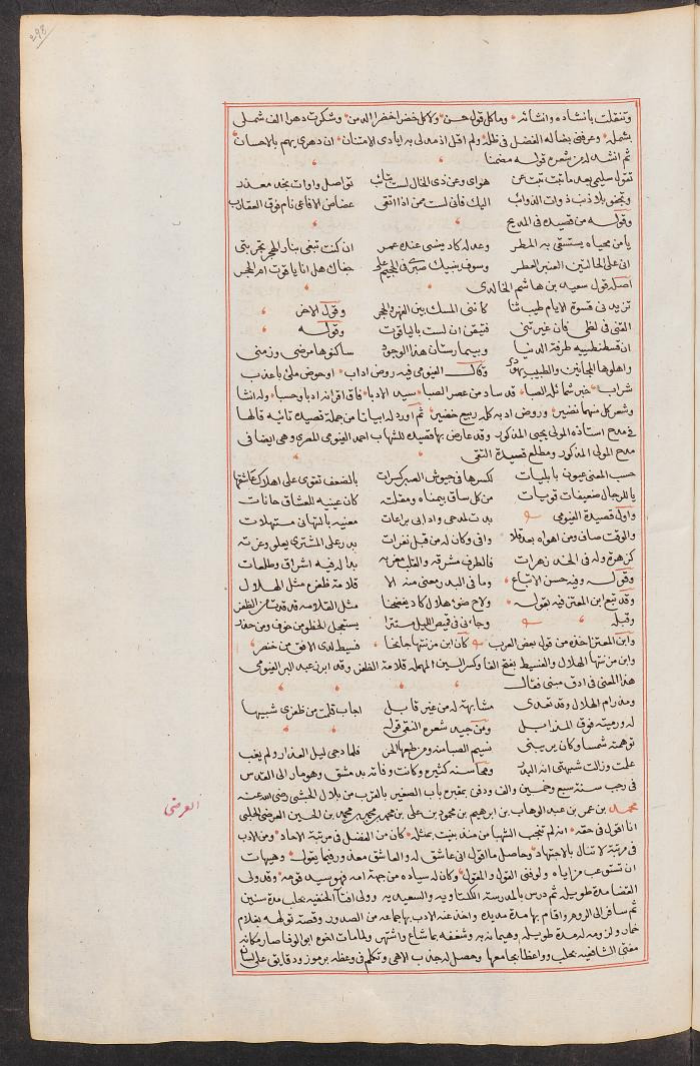 وتنقلت بانشاده وانشائه وما كل قول حسن ولا كل خضرا خضرا الدمن وشكرت دهرا الف شملي
بشمله وعرفني بضاله الفضل في ظله ولم اقل اذ مد لي به ايادي الامتنان ان دهري يهم بالاحسان
ثم انشد له من شعره قوله مضمنا
تقول سليمى بعد ما تبت تبت عن هواي وعن ذي الخال لست بتايب
تواصل واوات بخد معذر
وتجفو بلا ذنب ذوات الذوائب اليك فاني لست ممن اذا اتقى عضاض الافاعي نام فوق العقارب
وقوله من قصيدة في المديح
يا من محياه يستسقى به المطر وعدله كاد ينسى عنده عمر ان كنت تبغي بنار الهجر تجربتي
اني على الحالتين العنبر العطر جفاك هل انا ياقوت ام الحجر
اصله قول سعيد بن هاشم الخالدي
تزيدني قسوة الايام طيب ثنا كانني المسك بين الفهر والحجر وقول الاخر
القني في لظى فان غيرتني فتيقن ان لست بالياقوت وقوله
ان قسطنطينيه طرفة الدنيا وبيمارستان هذا الوجود ساكنوها مرضى وزمنى
واهلوها المجانين والطبيب يهودي وقال الفيومي فيه روض اداب او حوض ملئ باعذب
شراب خبر شمائله الصبا قد ساد من عصر الصبا سيد الادبا فاق اقرانه ادبا وحسبا وله انشا
وشعر كل منهما نضير وروض ادبه كله ربيع خضير ثم اورد له ابياتا من جملة قصيدة تائيه قالها
في مدح استاذه المولى يحيى المذكور وقد عارض بها قصيدة للشهاب احمد الفيومي المصري وهي ايضا في
مدح المولى المذكور ومطلع قصيدة التقي
حسب المعنى عيون بابليات لكسرها في جيوش الصبر كسرات بالضعف تقوى على اهلاك عاشقها
يا للرجال ضعيفات قويات من كل ساق بيمناه ومقلته كان عينيه للعشاق حانات
واول قصيدة الفيومي بدت لمدحي وادابي براعات معنيه بالتهاني مستهلات
والوقت صاف ومن اهواه بعد قلا وافى وكان له من قبل نفرات بدر على المشتري يعلو وعزته
كزهرة وله في الخد زهرات فالطرف مشرقه والقلب مغربه بدا له فيه اشراق وطلعات
وقوله وفيه حسن الاتباع وما في البدر معنى منه الا قلامة ظفره مثل الهلال
وقد تبع ابن المعتز فيه بقوله ولاح ضوء هلال كاد يفضحنا مثل القلامه قد قدت من الظفر
وقبله وجاءني في قميص الليل مستترا يستعجل الخطو من خوف ومن حذر
وابن المعتز اخذه من قول بعض العرب كان ابن مزنتها جانحا فسيط لدى الافق من خنصر
وابن مزنتها الهلال والفسيط بفتح الفا وكسر السين المهمله قلامة الظفر وقد ابرز عبد البر الفيومي
هذا المعنى في ادق مبنى فقال
ومذ رام الهلال وقد تعدى مشابهة له من غير قابل اجاب قلت من ظفري شبيها
له ورميته فوق المزابل ومن جيد شعره النقر قوله
توهمته شمسا وكان يريبني نسيم الصبا منه ومن طبعها الحر فلما دجى ليل العذار ولم يغب
علمت وزالت شبهتي انه البدر ومحاسنه كثيره وكانت وفاته بدمشق وهو مار الى القدس
في رجب سنة سبع وخمسين والف ودفن بمقبرة باب الصغير بالقرب من بلال الحبشي رضي الله عنه
محمد بن عمر بن عبد الوهاب بن ابراهيم بن محمود بن علي بن محمد بن محمد بن محمد بن الحسين العرضي الحلبي
العرضي
انا اقول في حقه انه لم تنجب الشهبا من منذ بنيت بمثله كان من الفضل في مرتبة الاحاد ومن الادب
في مرتبة لا تنال بالاجتهاد وحاصل ما اقول اني عاشق له والعاشق معذور فيما يقول وهيهات
ان تستوعب مزاياه ولو فني القول والمقول وكان له سياده من جهة امه فهو سيد قومه وقد ولي
القضا مدة طويله ثم درس بالمدرسة الكلتاويه والسعيديه وولي افتا الحنفيه بحلب مدة سنين
ثم سافر الى الروم واقام بها مدة مديده واخذ عنه الادب بها جماعه من الصدور وقصة تولهه بغلام
خمار ولزومه له مدة طويله وهيمانه به وشغفه مما شاع واشتهر ولما مات اخوه ابو الوفا صار مكانه
مفتي الشافعيه بحلب وواعظا بجامعها وحصل له جذب الاهي وتكلم في وعظه برموز ودقايق على لسان